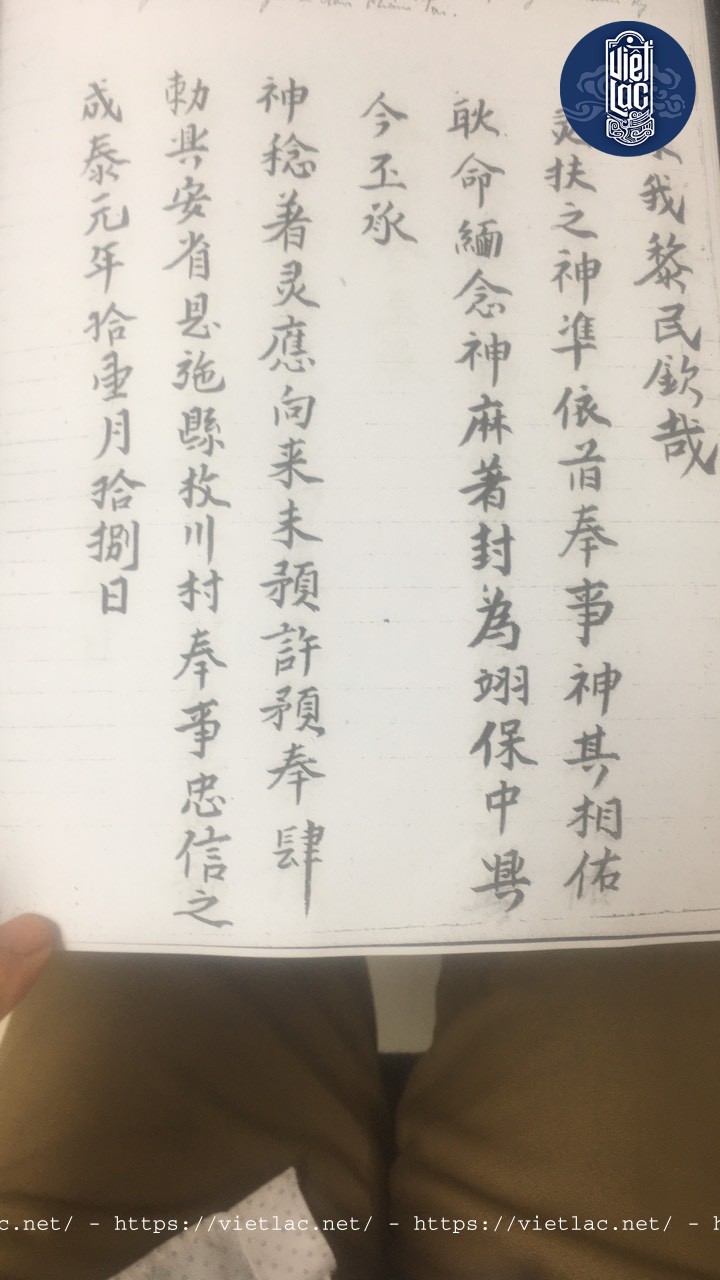 Việt
Lạc
我黎民欽哉
扶之神準依奉事神其相佑
耿命緬念神麻著封為翊保中興
今丕承
神稔著灵應向来未預許預奉肆
勅興安省恩施縣枚川村奉事忠信之
成泰元年拾壹月拾捌日
c.net/ - https://vietlac.net/ - https://vietlac.net/ - h